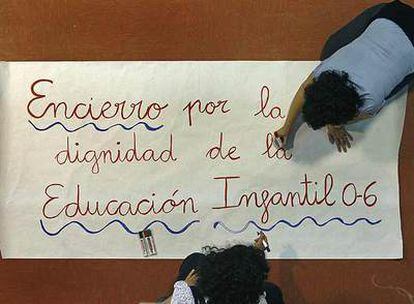 Encierro por la
dignidad de la
Educación Infantil 0-6